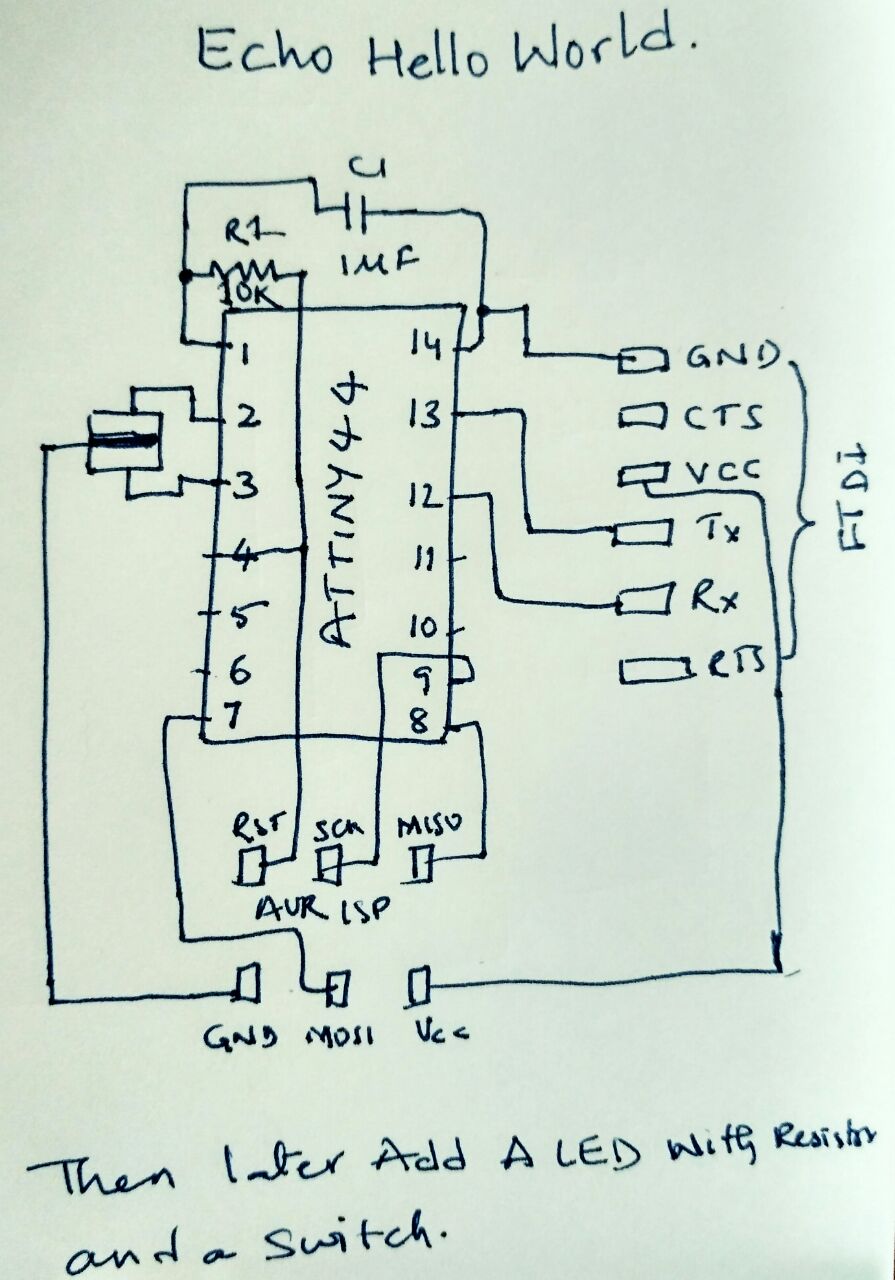 Echo Hello World.
C1
R1
1MF
10K
1
14
GND
2
13
CTS
3
VCC
12
Tx
4
11
Rx
5
10
6
9
RTS
7
8
ATTINY44
FTDI
RST SCK MISO
AVR ISP
GND MOSI Vcc
Then later Add A LED With Resistor
and a switch.